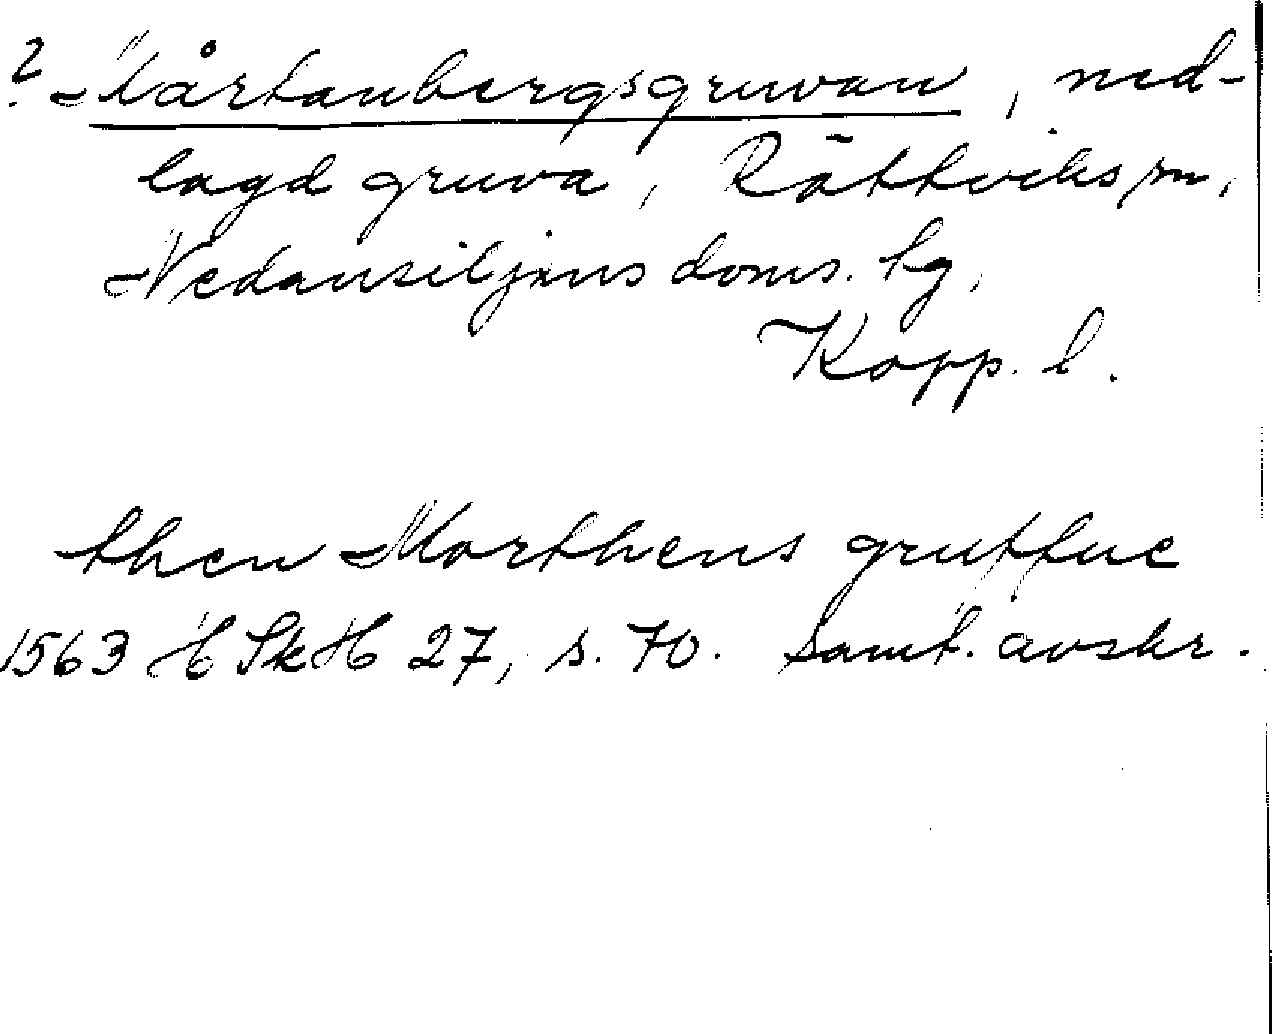 ? Mårtanbergsgruvan, ned-
lagd gruva, Rättviks sn,
Nedansiljans doms. hg,
Kopp. l.
then Morthens gruffue
1563 HSkH 27, s. 70. Samt. avskr.